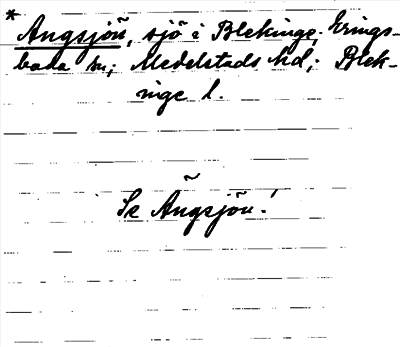 * Angsjön, sjö i Blekinge; Erings-
boda sn; Medelstads hd; Blek-
inge l.
Se Ängsjön!